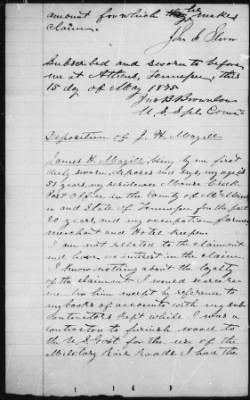 amount for which he makes
claim.
John F. Slover
Subscribed and sworn to before
me at Athens, Tennessee, this
15 day of May 1875
Jno B Brownlow
U.S. Spl. Com'r
Deposition of J. H. Magill
James H. Magill being by me first
duly sworn, deposes and says, my age is
51 years, my residence Mouse Creek
Post Office in the County of McMinn
and State of Tennessee for the past
20 years, and my occupation farmer
merchant and Hotel keeper.
I am not related to the claimant
and have no interest in the claim.
I know nothing about the loyalty
of the claimant. I would
him by reference to
my books of accounts with my sub
Contractors kept while I was a
contractor to furnish wood to
the U.S. Govt for the use of the
Military Rail Roads. I had the